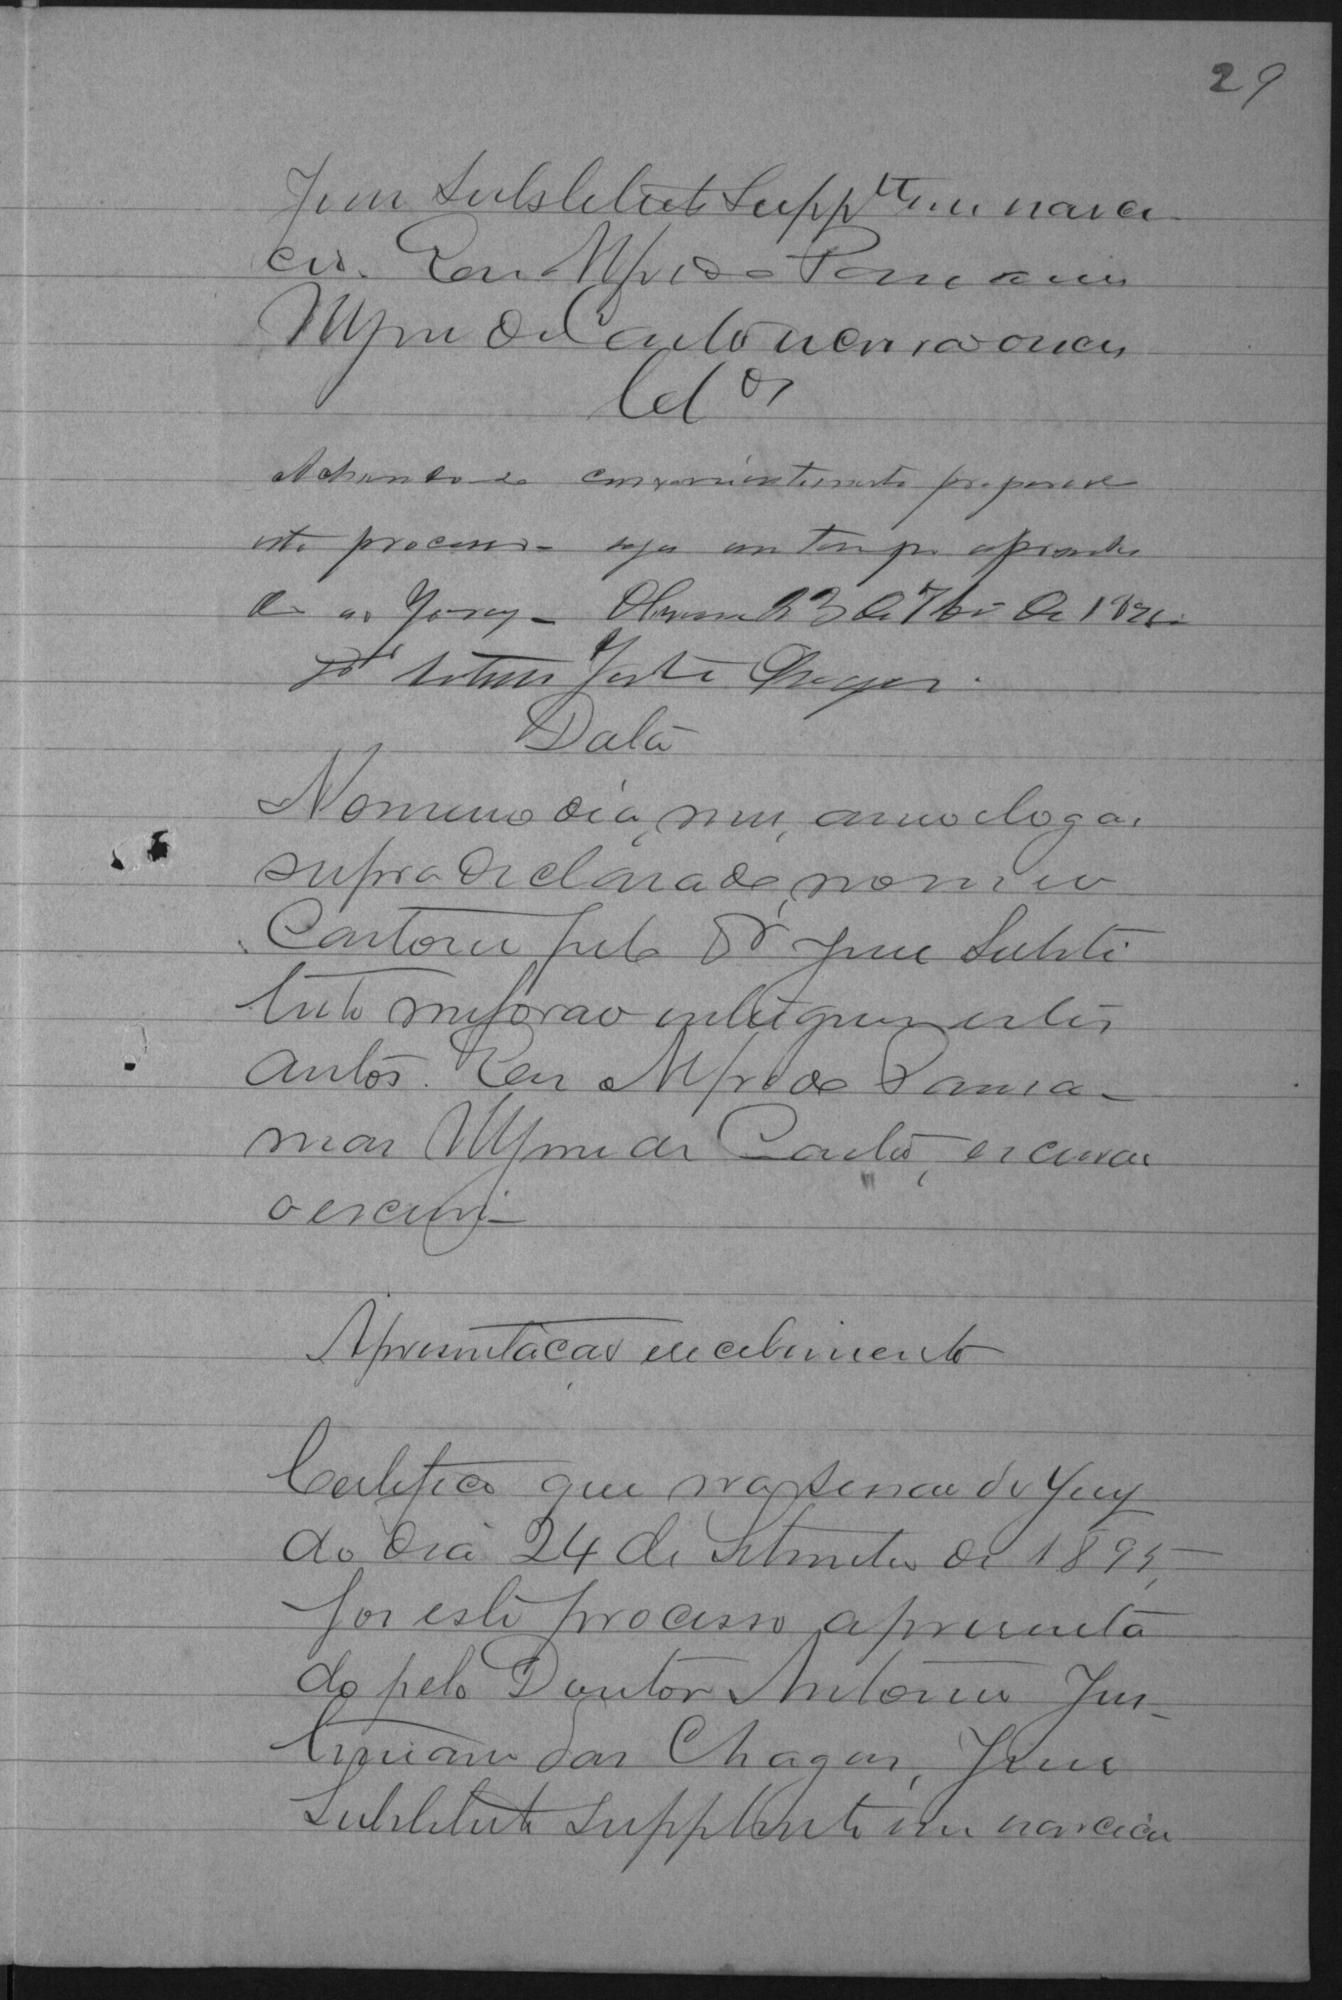 29
Juiz Substituto Supp.te em exerci
cio. Eu Alfredo
de Couto escrivão o escrevi
Cls
Achando-se convenientemente preparado
este processo seja em tempo apresenta
do ao Jury. 23 de 7bro de 189
Data
No mesmo dia, mez, anno e logar
supra declarado, no meu
Cartorio pelo Dr Juiz Substi
tuto me forão entregues estes
autos. Eu Alfredo
de Couto, escrivão
o escrevi
Apresentação e recebimento
Certifico que na sessão do Jury
do dia 24 de Setembro de 1895,
foi este processo apresenta
do pelo Doutor Antonio Jus
tiniano das Chagas, Juiz
Substituto Supplente em exercicio